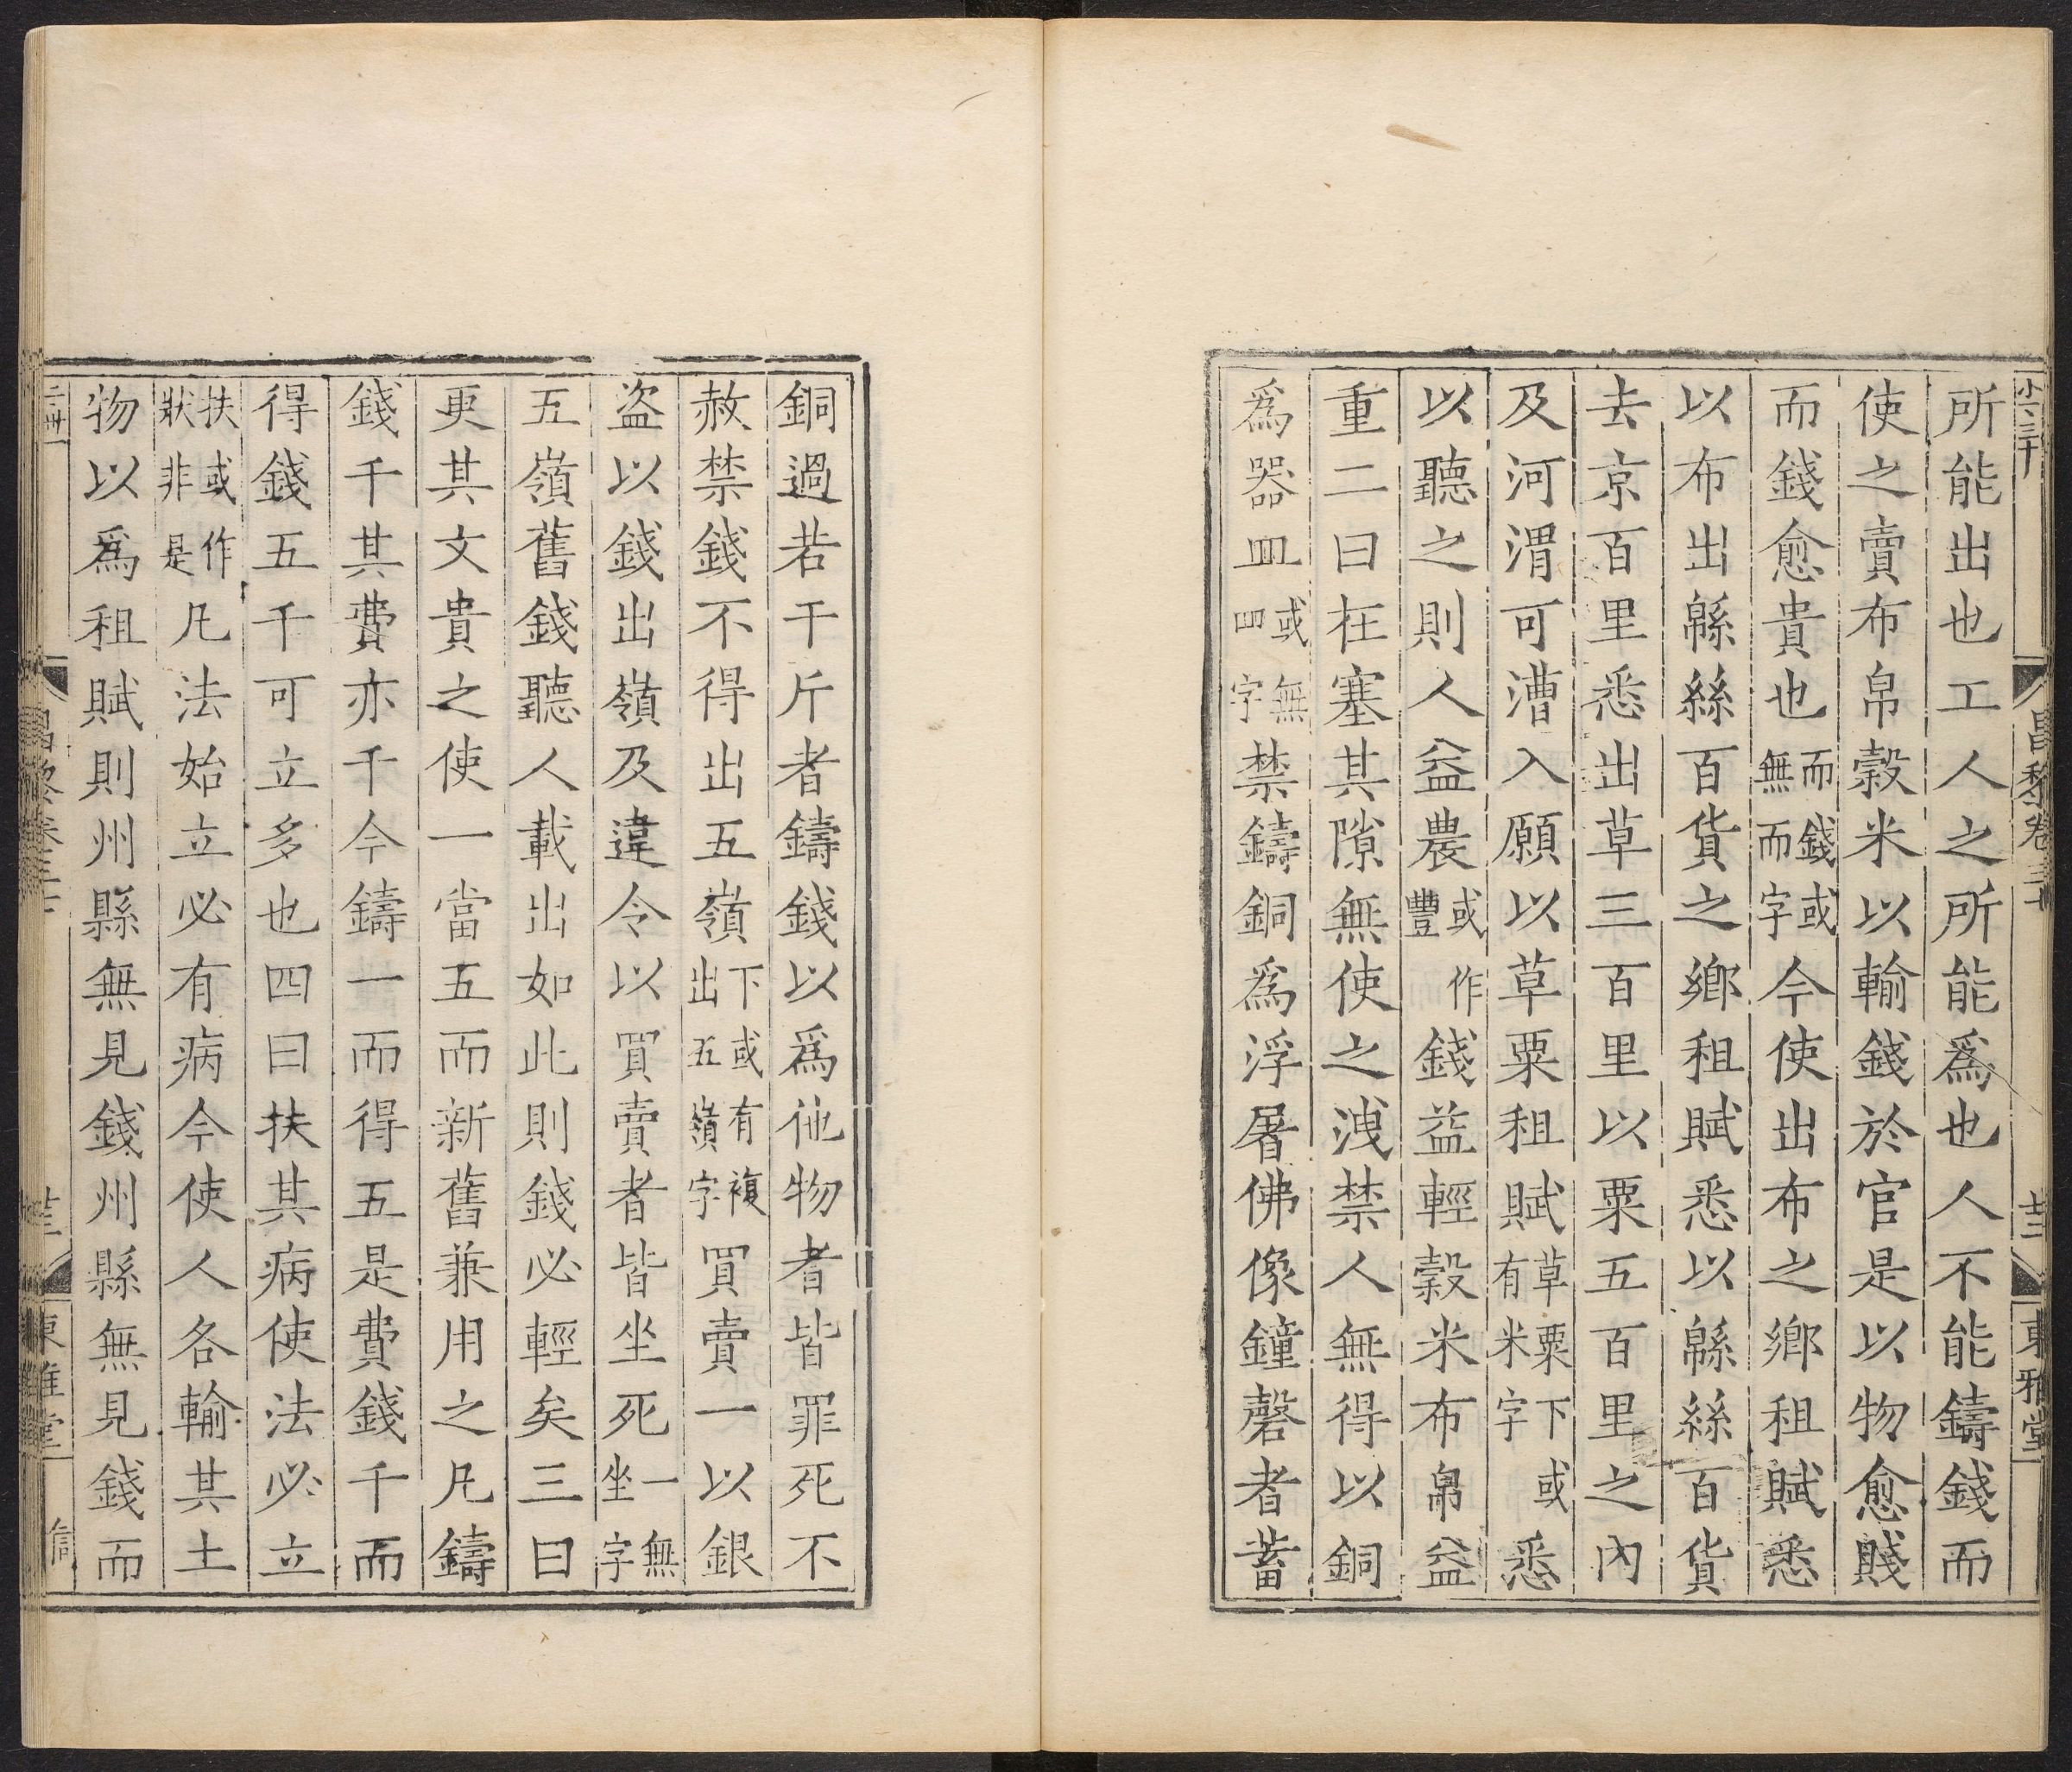 所能出也工人之所能爲也人不能鑄錢而
使之賣布帛穀米以輸錢於官是以物愈賤
而錢愈貴也而錢或無而字今使出布之鄉租賦悉
以布出緜絲百貨之鄉租賦悉以緜絲百貨
去京百里悉出草三百里以粟五百里之內
及河渭可漕入願以草粟租賦草粟下或有米字悉
以聽之則人益農或作豐錢益輕穀米布帛益
重二曰在塞其隙無使之洩禁人無得以銅
爲器皿或無四字禁鑄銅爲浮屠佛像鐘磬者蓄
昌黎卷三十
東雅堂
銅過若干斤者鑄錢以爲他物者皆罪死不
赦禁錢不得出五嶺下或有複出五嶺字買賣一以銀
盜以錢出嶺及違令以買賣者皆坐死一無坐字
五嶺舊錢聽人載出如此則錢必輕矣三曰
更其文貴之使一當五而新舊兼用之凡鑄
錢千其費亦千今鑄一而得五是費錢千而
得錢五千可立多也四曰扶其病使法必立
扶或作狀非是凡法始立必有病今使人各輸其土
物以爲租賦則州縣無見錢州縣無見錢而
東雅堂